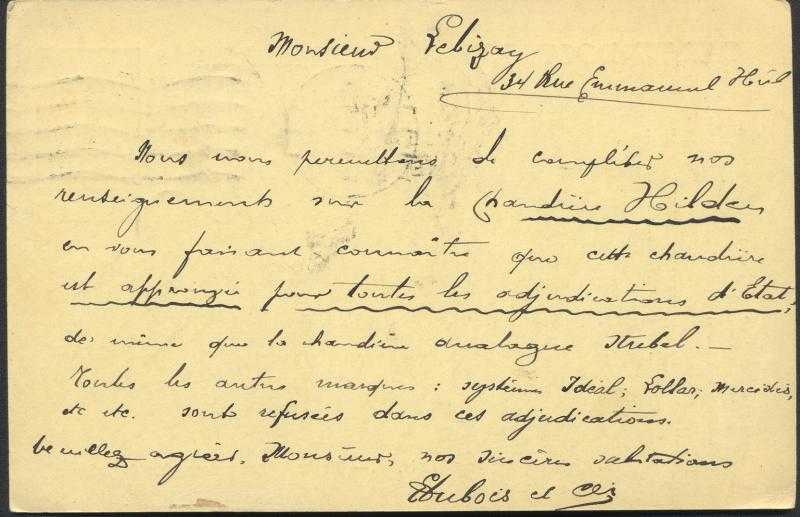 Monsieur Lebizay
34 Rue Emmanuel Hiel
Nous nous permettons de compléter nos
renseignements sur la chaudière Hilden
en vous faisant connaître que cette chaudière
est approuvée pour toutes les adjudications d'Etat,
de même que la chaudière analogue Strebel. —
Toutes les autres marques : système Idéal, Lollar, Mercédès,
etc etc. sont refusées dans ces adjudications.
Veuillez agréer, Monsieur, nos sincères salutations
Dubois et Cie